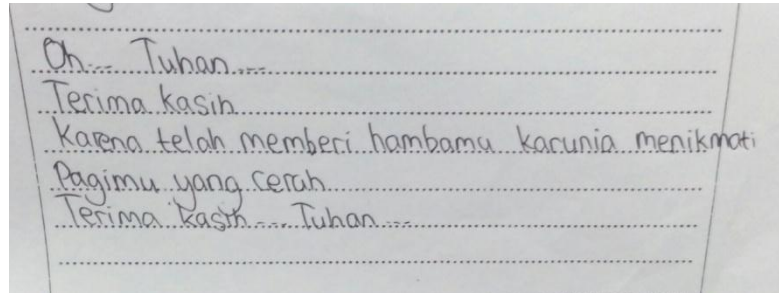 Oh... Tuhan...
Terima kasih
Karena telah memberi hambamu karunia menikmati
Pagimu yang cerah
Terima kasih... Tuhan...